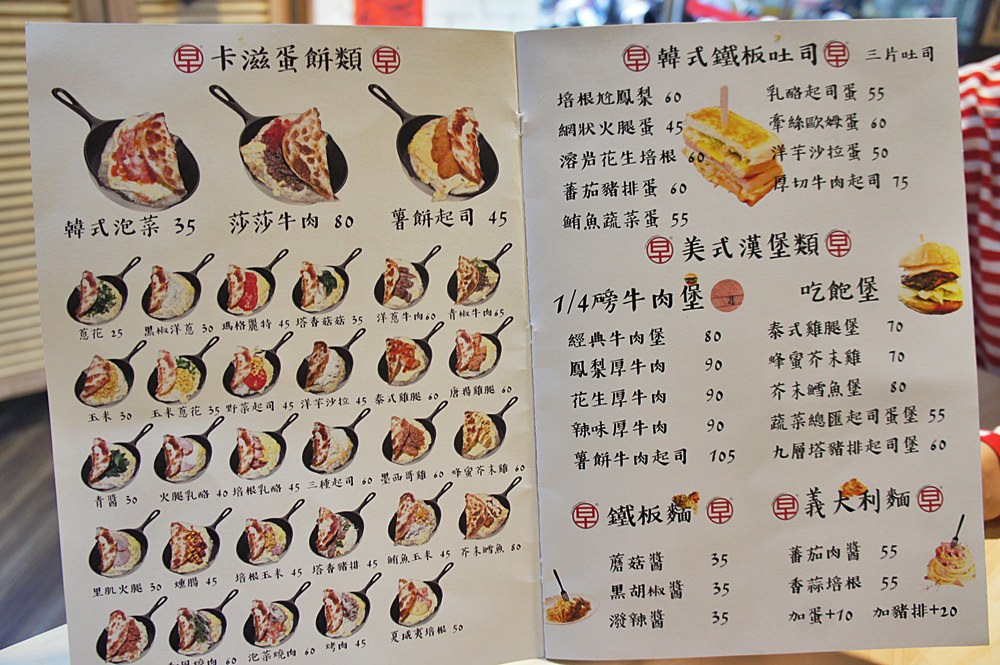 早 卡滋蛋餅類 早
韓式泡菜 35 莎莎牛肉 80 薯餅起司 45
蔥花 25 黑椒洋蔥 30 瑪格麗特 45 塔香菇菇 35 洋蔥牛肉 60 青椒牛肉 65
玉米 30 玉米蔥花 35 野菜起司 45 洋芋沙拉 45 泰式雞腿 60 唐揚雞腿 60
青醬 30 火腿乳酪 40 培根乳酪 45 三種起司 60 墨西哥雞 60 蜂蜜芥末雞 60
里肌火腿 30 燻腸 45 培根玉米 45 塔香豬排 45 鮪魚玉米 45 芥末鱈魚 80
燒肉 60 泡菜燒肉 60 烤肉 45 夏威夷培根 50
早 韓式鐵板吐司 早 三片吐司
培根尬鳳梨 60
網狀火腿蛋 45
溶岩花生培根 60
蕃茄豬排蛋 60
鮪魚蔬菜蛋 55
乳酪起司蛋 55
牽絲歐姆蛋 60
洋芋沙拉蛋 50
厚切牛肉起司 75
早 美式漢堡類 早
1/4磅牛肉堡
經典牛肉堡 80
鳳梨厚牛肉 90
花生厚牛肉 90
辣味厚牛肉 90
薯餅牛肉起司 105
吃飽堡
泰式雞腿堡 70
蜂蜜芥末雞 70
芥末鱈魚堡 80
蔬菜總匯起司蛋堡 55
九層塔豬排起司堡 60
早 鐵板麵 早
蘑菇醬 35
黑胡椒醬 35
潑辣醬 35
早 義大利麵 早
蕃茄肉醬 55
香蒜培根 55
加蛋+10 加豬排+20